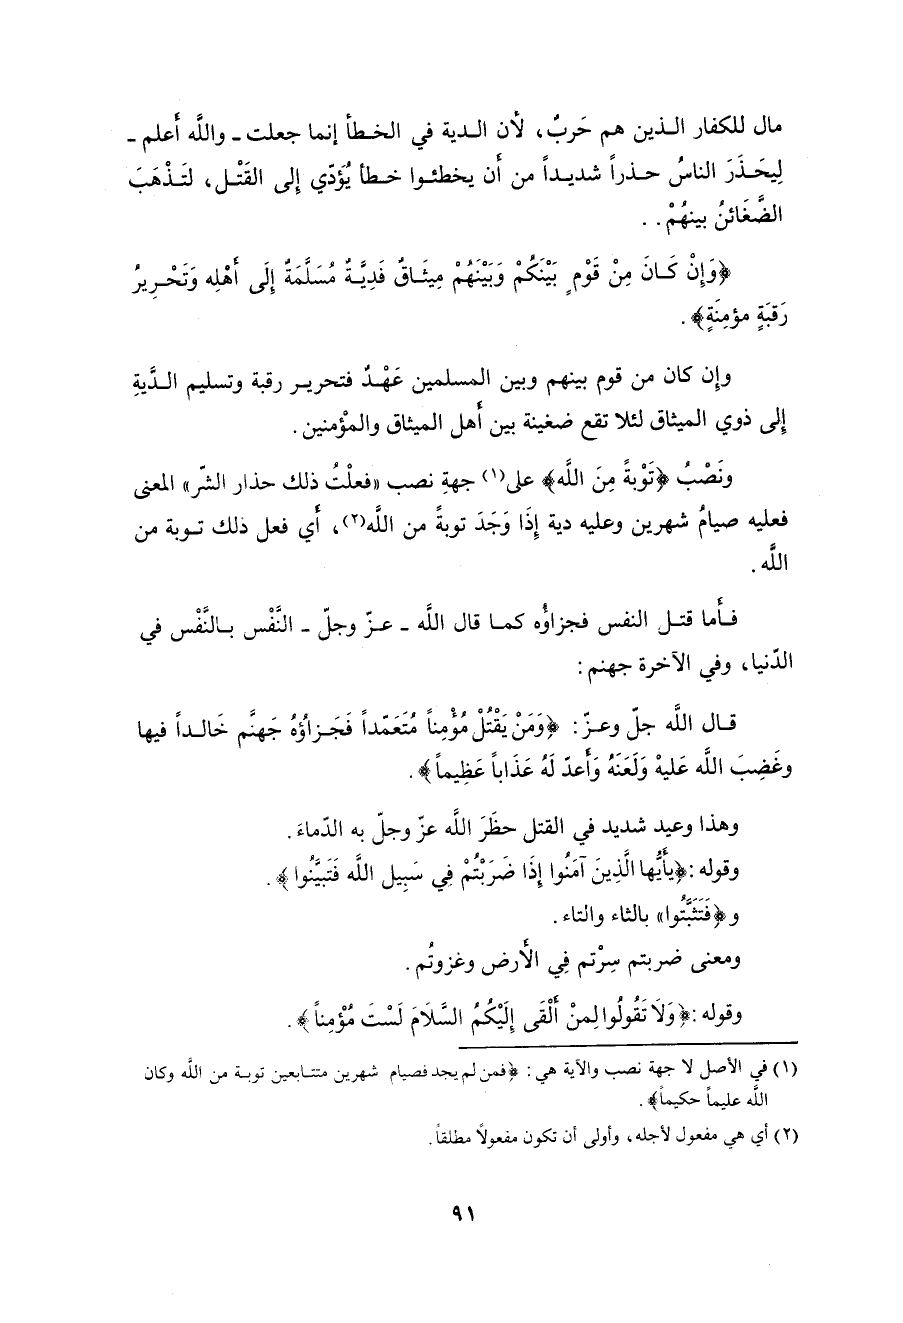 مال للكفار الذين هم حَربٌ، لأن الدية في الخطأ إنما جعلت ـ واللَّه أَعلم ـ
لِيحَذَرَ الناسُ حذراً شديداً من أَن يخطئوا خطأ يُؤَدّي إلى القَتْل، لتَذْهَبَ
الضَّغَائنُ بينهُمْ..
﴿وَإِنْ كَانَ مِنْ قَوْمٍ بَيْنَكُمْ وَبَيْنَهُمْ مِيثَاقٌ فَدِيَّةٌ مُسَلَّمَةٌ إلَى أَهْلِه وَتَحْرِيرُ
رَقَبَةٍ مؤمِنَةٍ﴾.
وإن كان من قوم بينهم وبين المسلمين عَهْدٌ فتحرير رقبة وتسليم الدَّيةِ
إلى ذوي الميثاق لئلا تقع ضغينة بين أَهل الميثاق والمؤْمنين.
ونَصْبُ ﴿تَوْبةً مِنَ اللَّه﴾ على(١) جهةِ نصب «فعلْتُ ذلك حذار الشّر» المعنى
فعليه صيامُ شهرين وعليه دية إِذَا وَجَدَ توبةً من اللَّه(٢)، أَي فعل ذلك توبة من
اللَّه.
فأَما قتل النفس فجزاؤُه كما قال اللَّه ـ عزّ وجلّ ـ النَّفْس بالنَّفْس في
الدّنيا، وفي الآخرة جهنم:
قال اللَّه جلّ وعزّ: ﴿وَمَنْ يَقْتُلْ مُؤْمِناً مُتَعَمّداً فَجَزاؤُهُ جَهنَّم خَالداً فيها
وغَضِبَ اللَّه عَليهْ وَلَعَنَهُ وَأَعدّ لَهُ عَذَاباً عَظِيماً﴾.
وهذا وعيد شديد في القتل حظَرَ اللَّه عزّ وجلّ به الدّماءَ.
وقوله: ﴿يأَيُّها الَّذِينَ آمَنُوا إذَا ضَرَبْتُمْ فِي سَبِيل اللَّه فَتَبيَّنُوا﴾.
و﴿فَتَثَبَّتُوا» بالثاء والتاء.
ومعنى ضربتم سِرْتم فِي الأَرض وغزوتُم.
وقوله: ﴿وَلَا تَقُولُوا لِمنْ أَلْقَى إِلَيْكُمُ السَّلَامَ لَسْتَ مُؤْمِناً﴾.
(١) في الأصل لا جهة نصب والآية هي: ﴿فمن لم يجد فصيام شهرين متتابعين توبة من اللَّه وكان
اللَّه عليماً حكيماً﴾.
(٢) أي هي مفعول لأجله، وأولى أن تكون مفعولاً مطلقاً.
٩١